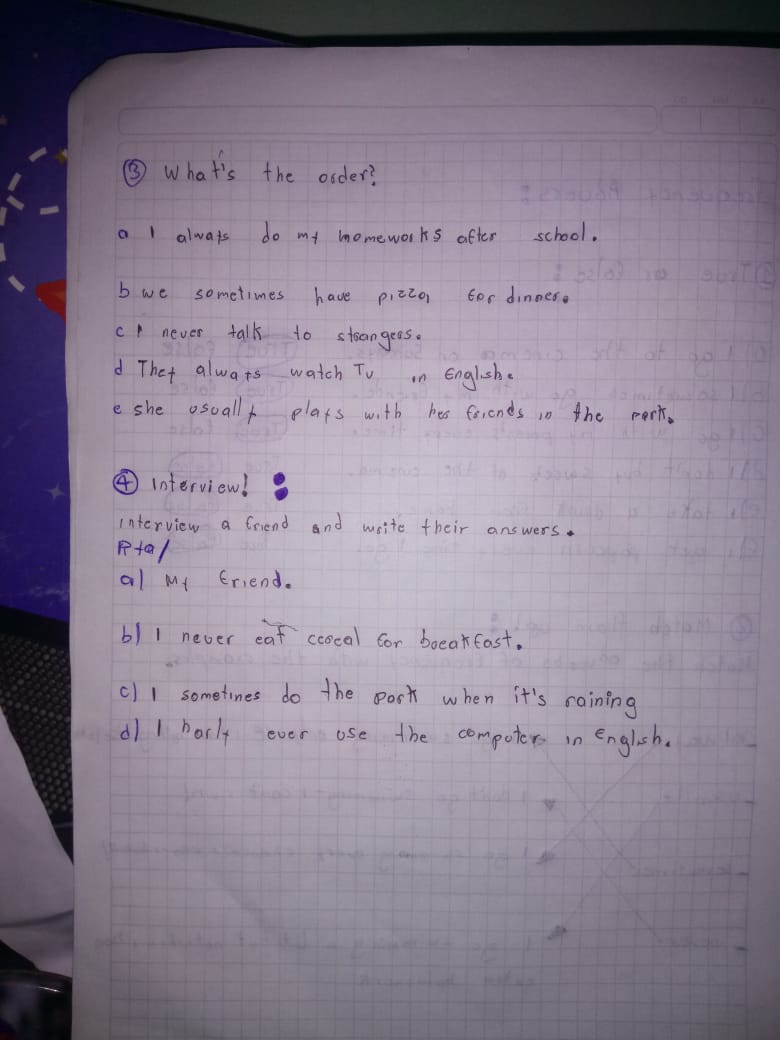 ③ What's the order?
a I always do my homeworks after school.
b we sometimes have pizza for dinner.
c I never talk to strangers.
d They always watch Tv in English.
e she usually plays with her friends in the park.
④ Interview! :
interview a friend and write their answers.
Rta/
a) My friend.
b) I never eat cereal for breakfast.
c) I sometines do the park when it's raining
d) I harly ever use the computer in English.